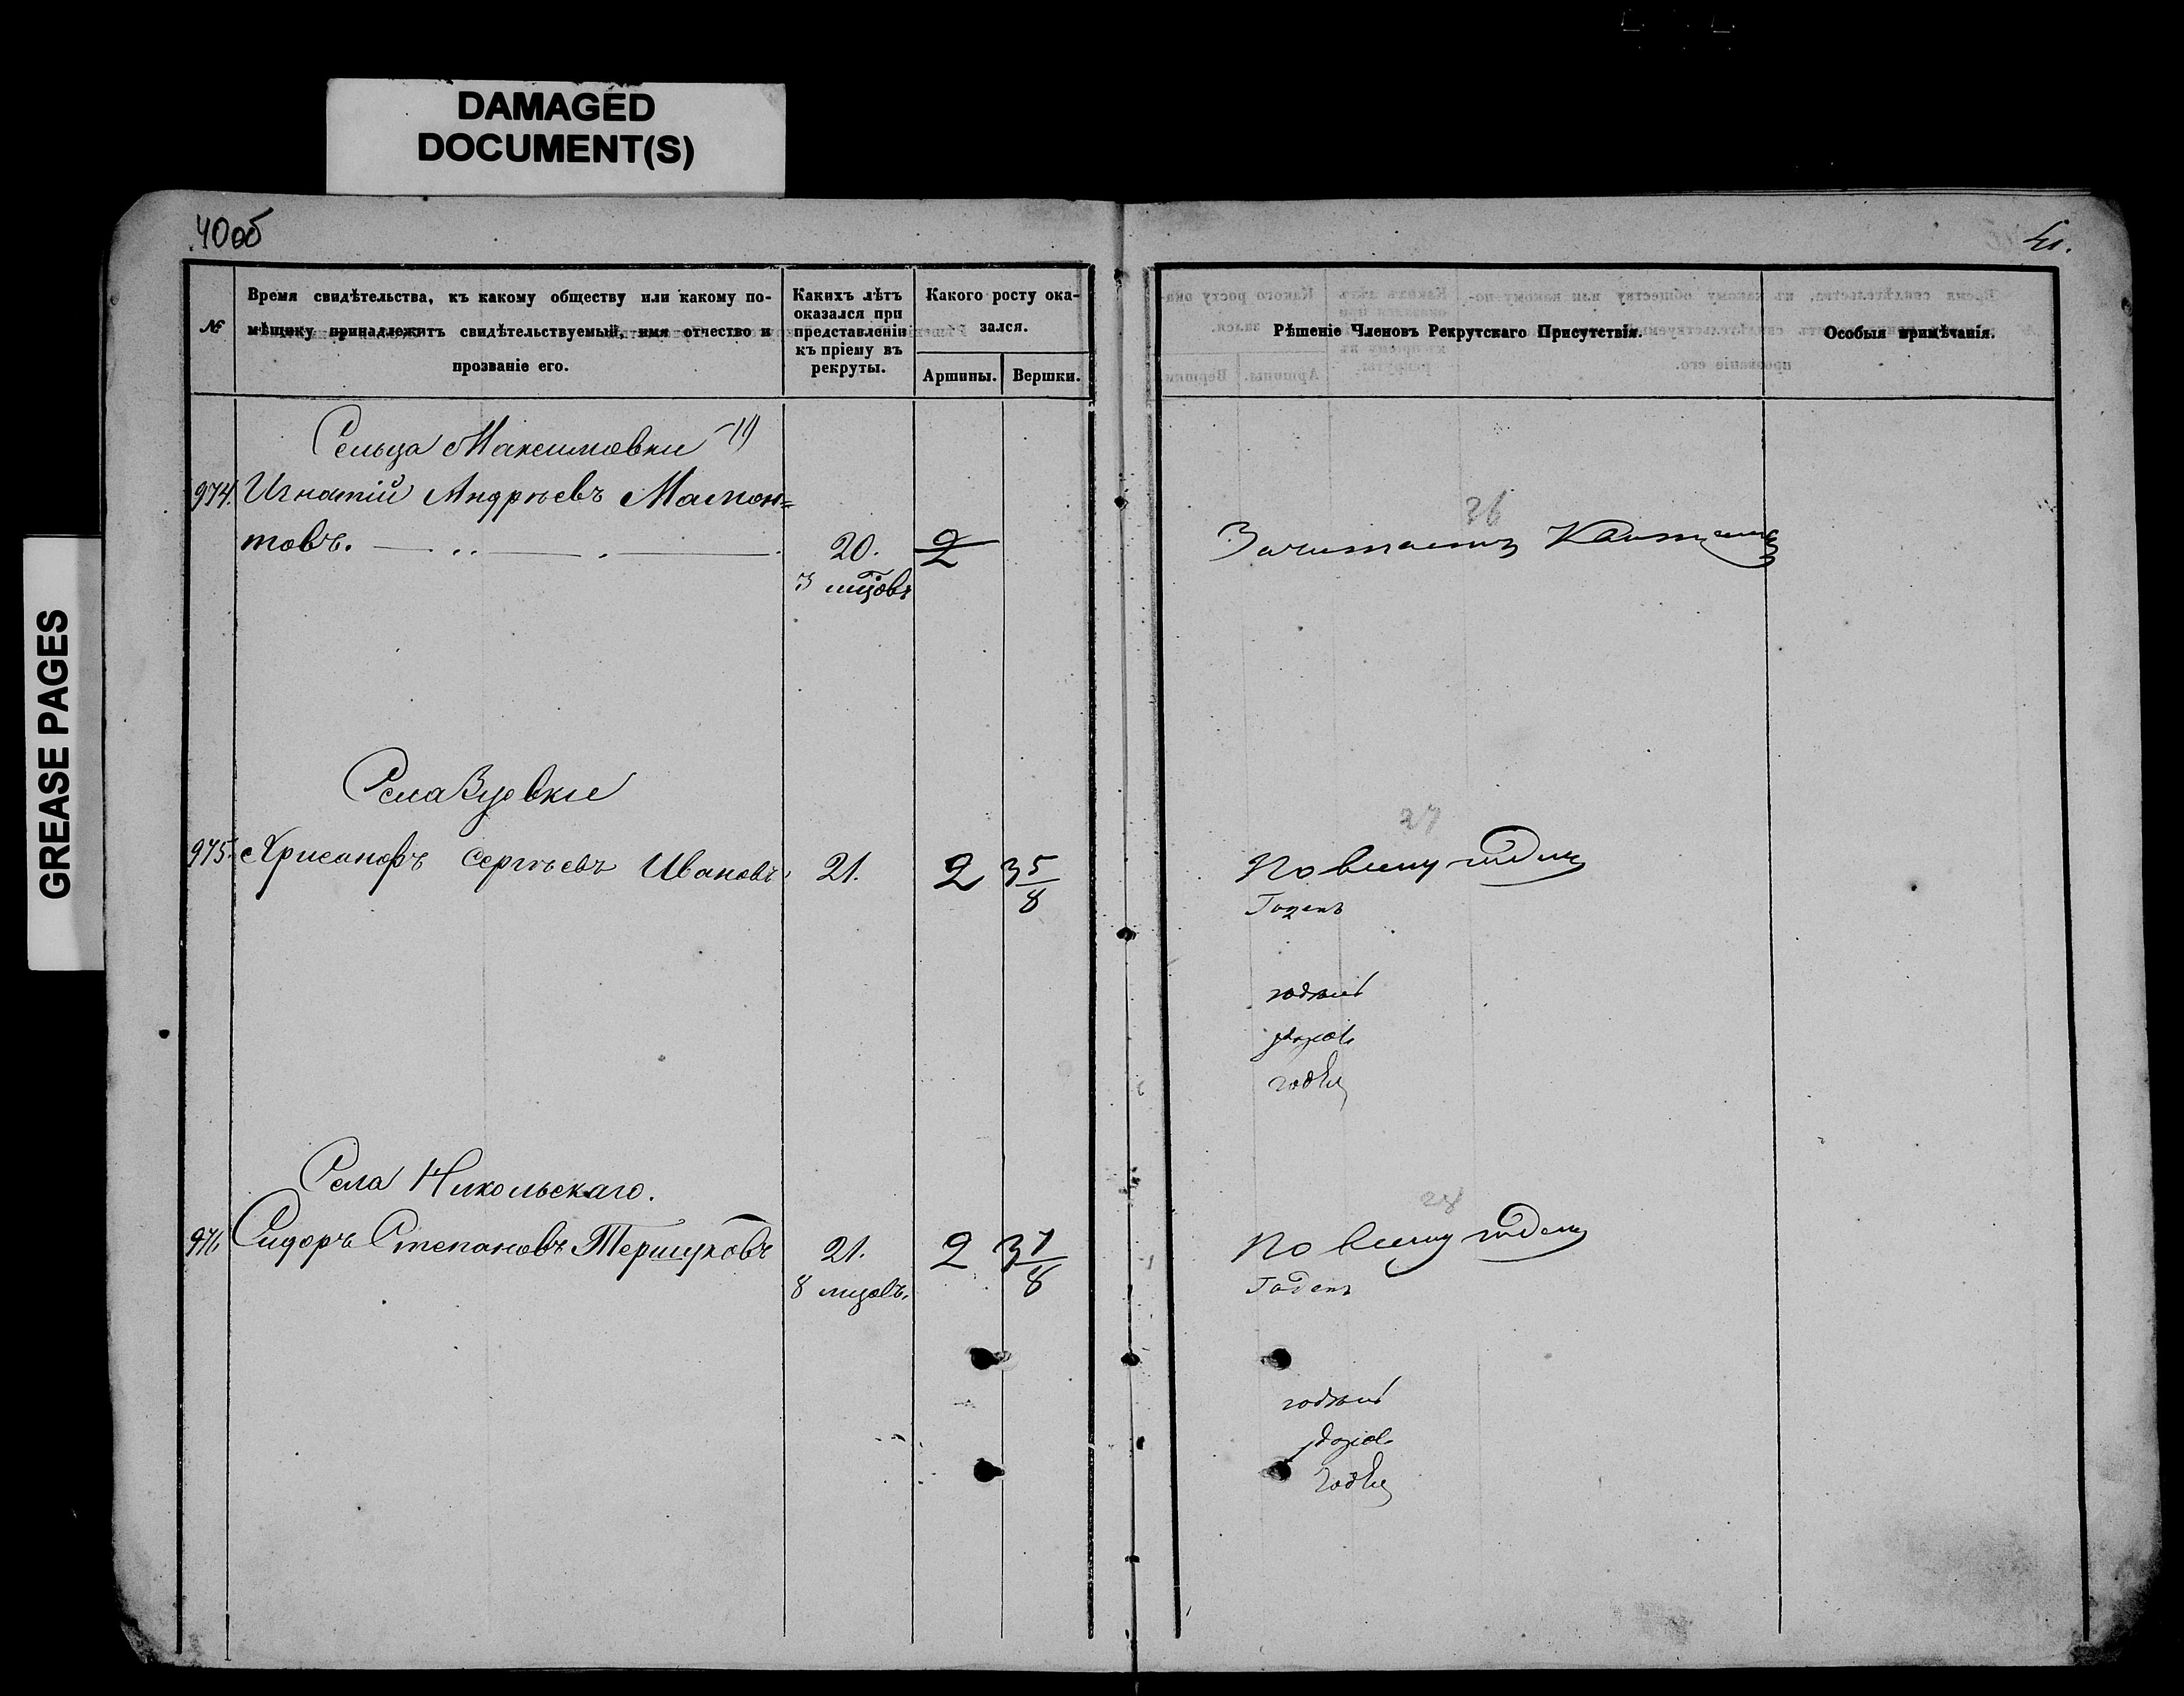 DAMAGED
DOCUMENT(S)
GREASE PAGES
40об
41.
№
Время свидѣтельства, къ какому обществу или какому по-
мѣщику принадлежитъ свидѣтельствуемый, имя отчество и
прозваніе его.
Какихъ лѣтъ
оказался при
представленіи
къ пріему въ
рекруты.
Какого росту ока-
зался.
Аршины.
Вершки.
Рѣшеніе Членовъ Рекрутскаго Присутствія.
Особыя примѣчанія.
Сельца Максимовки
974. Игнатій Андрѣевъ Мамон=
товъ. 20. 2
3 мцовъ
26
Зачитаемъ
Села
975. Хрисанфъ Сергѣевъ Ивановъ 21. 2 3 5/8
27
По всему годенъ
Годенъ
годенъ
годенъ
Села Никольскаго.
976 Сидоръ Степановъ Першуковъ 21. 2 3 7/8
8 мцовъ.
28
По всему годенъ
Годенъ
годенъ
годенъ